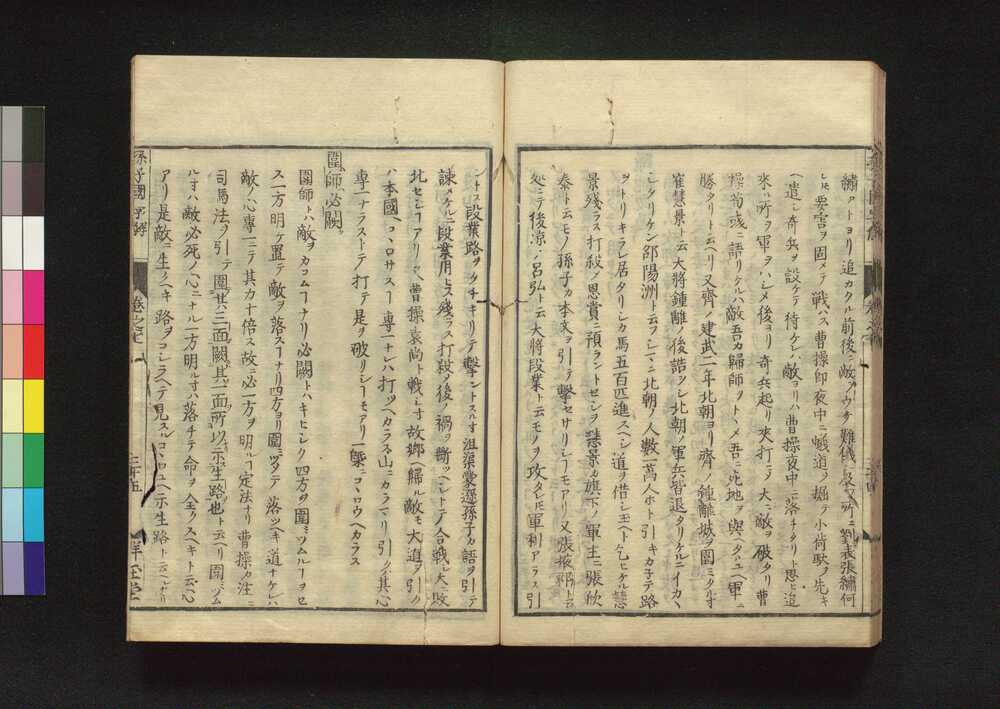 繍アトヨリ追カクル前後ニ敵ヲウケ難儀ニ及フ所ニ劉表張繍何
レモ要害ヲ固メテ戦ハス曹操即夜中ニ蟻道ヲ掘テ小荷駄ヲ先キ
ヘ遣シ奇兵ヲ設ケテ待ケレハ敵ヨリハ曹操夜中ニ落チタリト思ヒ追
来ル所ヲ軍ヲハシメ後ヨリ奇兵起リ夾打ニテ大ニ敵ヲ破タリ曹
操荀彧ニ語リケルハ敵吾カ歸師ヲトヽメ吾ニ死地ヲ與ヘタユヘ軍ニ
勝タリト云ヘリ又齊ノ建武二年北朝ヨリ齊ノ鍾離城ヲ圍ミタル寸
崔慧景ト云大將鍾離ノ後詰ヲシ北朝ノ軍兵皆退タリケルニイカヽ
シタリケン邵陽洲ト云フシマニ北朝ノ人數一萬人ホト引キカ子テ路
ヲトリキラレ居タリシカ馬五百匹進スヘシ道ヲ借シ玉ヘト乞ヒケル慧
景残ラス打殺ノ恩賞ニ預ラントセシヲ慧景カ旗下ノ軍主ニ張欣
泰ト云モノ孫子カ本文ヲ引テ撃セサリシヿモアリ又張掖郡ト云
処ニテ後凉ノ呂弘ト云大將段業ト云モノヲ攻タレモ軍利アラス引
ントス段業路ヲクチキリテ撃ントスル寸沮渠蒙遜孫子カ語ヲ引テ
諫メケルニ段業用ヒス残ラス打殺ノ後ノ禍ヲ斷ツヘシトテ合戰ノ大敗
北セシヿアリ又曹操袁尚ト戰シ寸故郷ヘ歸ル敵モ大道ヲ引ク
ハ本國ヘコヽロサスヿ專一ナレハ打ツヘカラス山ニカヽリ引クハ其心
專一ナラストテ打テ是ヲ破リシヿモアリ一槩ニコヽロウヘカラス
圍師必闕
圍師トハ敵ヲカコムヿナリ必闕トハキヒシク四方ヲ圍ミツムルヿヲセ
ス一方明ケ置テ敵ヲ落スヿナリ四方ヨリ圍ミツメテ落ツヘキ道ナケレハ
敵ノ心專一ニテ其力十倍ス故ニ必一方ヲ明ルヿ定法ナリ曹操カ注ニ
司馬法ヲ引テ圍其三面闕其一面所以示生路也ト云ヘリ圍ミツム
ル寸ハ敵必死ノ心ニナル一方明ル寸ハ落チテ命ヲ全クスヘキト云心
アリ是敵ニ生クヘキ路ヲコシラヘテ見スルコヽロユヘ示生路ト云ヘルナリ
孫子國字解
卷之七
三十五